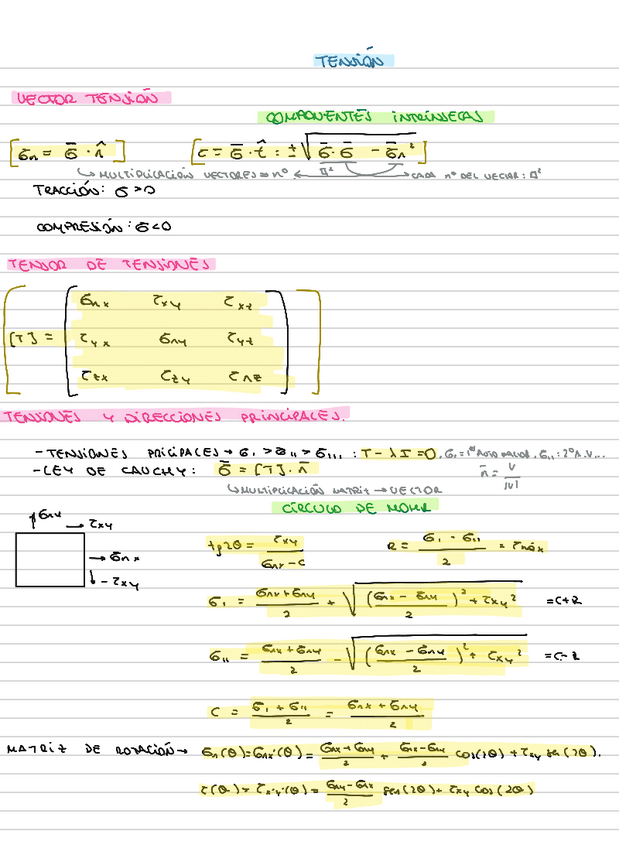 TENSIÓN
VECTOR TENSIÓN
COMPONENTES INTRÍNSECAS
[σn = σ̄ · n̂] [τ = σ̄ · t̂ : ±√(σ̄ · σ̄ − σ̄n²)]
↳ MULTIPLICACIÓN VECTORES = nº ← □² → CADA nº DEL VECTOR: □²
TRACCIÓN: σ > 0
COMPRESIÓN: σ < 0
TENSOR DE TENSIONES
σnx τxy τxz
[T] = τyx σny τyz
τzx τzy τnz
TENSIONES Y DIRECCIONES PRINCIPALES.
- TENSIONES PRICIPALES → σI > σII > σIII : T − λI = 0, σI = 1º AUTO VALOR, σII : 2º A.V...
- LEY DE CAUCHY: σ̄ = [T] · n̄ n̄ = v/|v|
↳ MULTIPLICACIÓN MATRIZ → VECTOR
CÍRCULO DE MOHR
σny → τxy
→ σnx
↓ - τxy
tg2θ = τxy / (σnx − c) R = (σI − σII) / 2 = τmáx
σI = (σnx + σny)/2 + √(((σnx − σny)/2)² + τxy²) = C + R
σII = (σnx + σny)/2 − √(((σnx − σny)/2)² + τxy²) = C − R
C = (σI + σII)/2 = (σnx + σny)/2
MATRIZ DE ROTACIÓN → σn(θ) = σnx'(θ) = (σnx + σny)/2 + (σnx − σny)/2 cos(2θ) + τxy sen(2θ).
τ(θ) = τx'y'(θ) = (σny − σnx)/2 sen(2θ) + τxy cos(2θ)